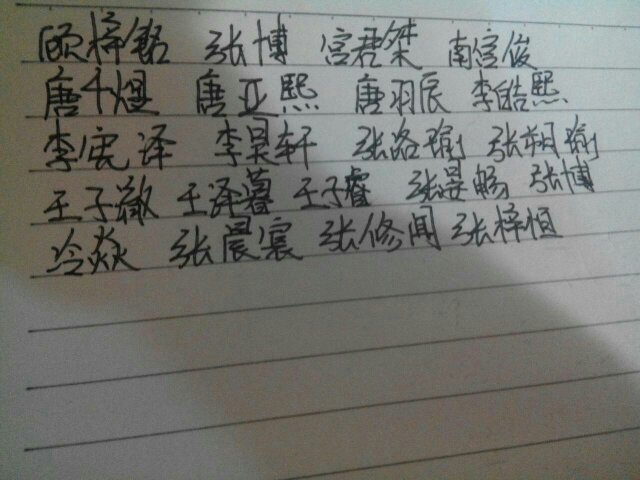 顾梓铭 张博 宫君桀 南宫俊
唐千煜 唐亚熙 唐羽辰 李皓熙
李宸泽 李昊轩 张洛瑜 张朔瑜
王子徽 王泽暮 王子睿 张旻畅 张博
冷焱 张晨寰 张修闻 张梓恒